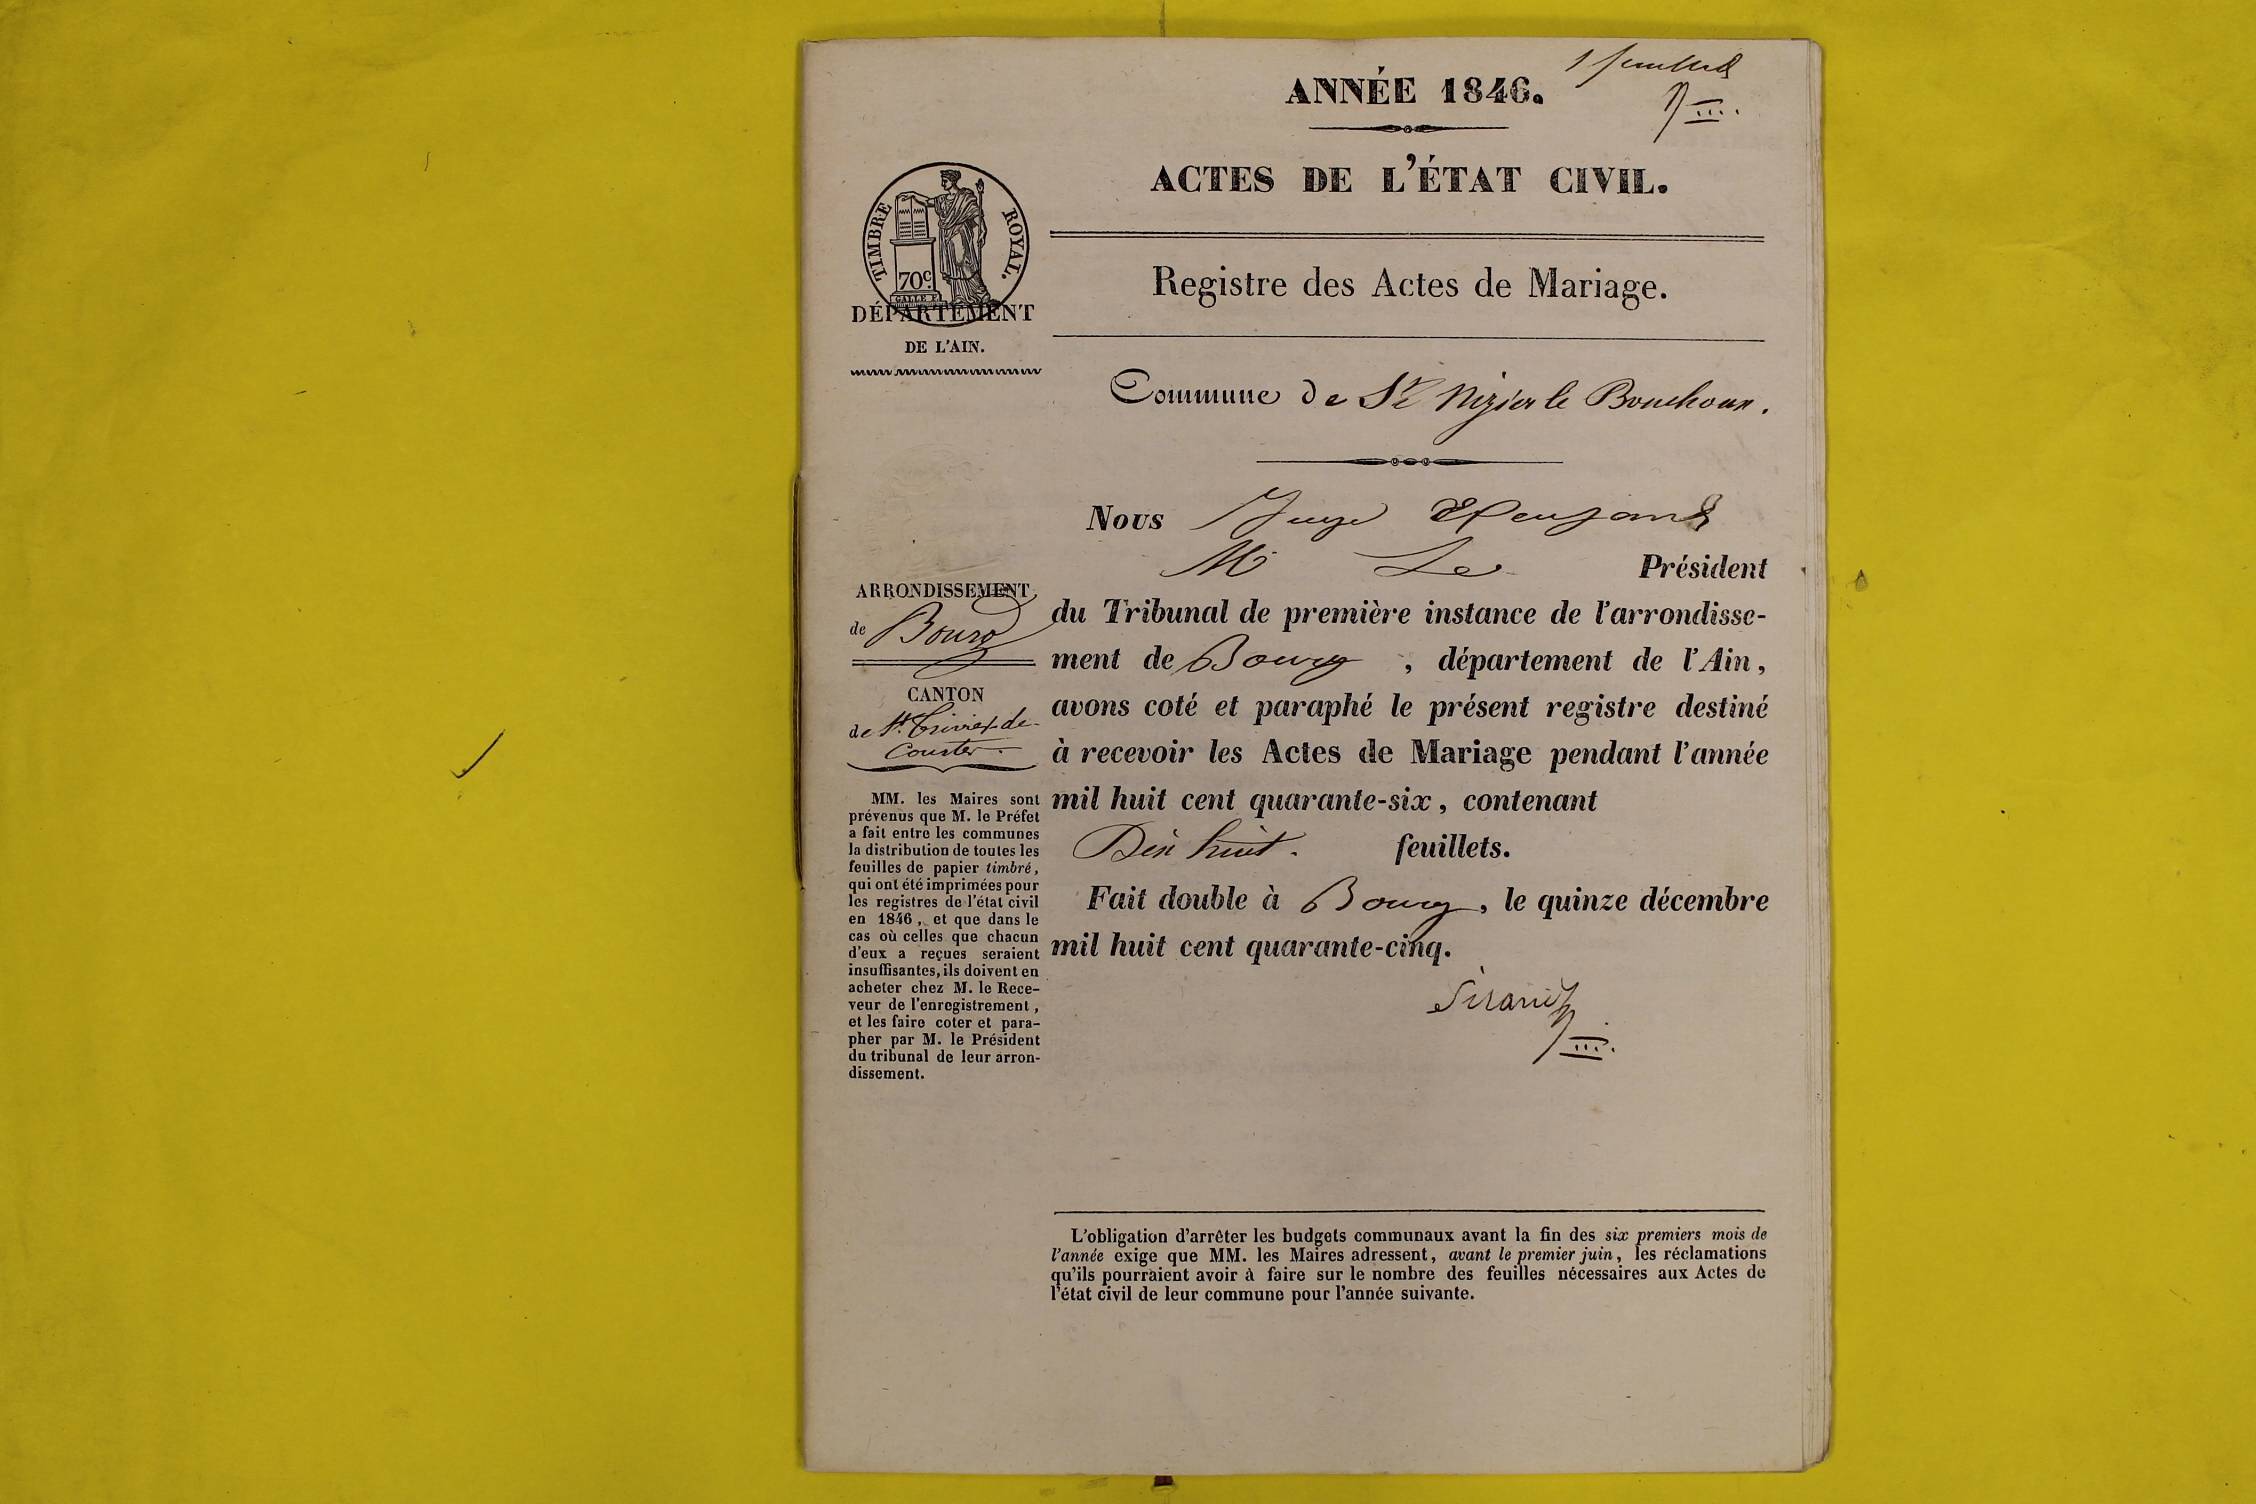 1 feuillet
ANNÉE 1846.
ACTES DE L'ÉTAT CIVIL.
TIMBRE ROYAL.
70c.
DÉPARTEMENT
DE L'AIN.
Registre des Actes de Mariage.
Commune de St Nizier le Bouchoux.
Nous Juge
Mr Le Président
du Tribunal de première instance de l'arrondisse-
ment de Bourg, département de l'Ain,
avons coté et paraphé le présent registre destiné
à recevoir les Actes de Mariage pendant l'année
mil huit cent quarante-six, contenant
Dix huit. feuillets.
Fait double à Bourg, le quinze décembre
mil huit cent quarante-cinq.
ARRONDISSEMENT
de Bourg
CANTON
de St. Trivier-de-
Courtes.
MM. les Maires sont
prévenus que M. le Préfet
a fait entre les communes
la distribution de toutes les
feuilles de papier timbré,
qui ont été imprimées pour
les registres de l'état civil
en 1846, et que dans le
cas où celles que chacun
d'eux a reçues seraient
insuffisantes, ils doivent en
acheter chez M. le Rece-
veur de l'enregistrement,
et les faire coter et para-
pher par M. le Président
du tribunal de leur arron-
dissement.
L'obligation d'arrêter les budgets communaux avant la fin des six premiers mois de
l'année exige que MM. les Maires adressent, avant le premier juin, les réclamations
qu'ils pourraient avoir à faire sur le nombre des feuilles nécessaires aux Actes de
l'état civil de leur commune pour l'année suivante.